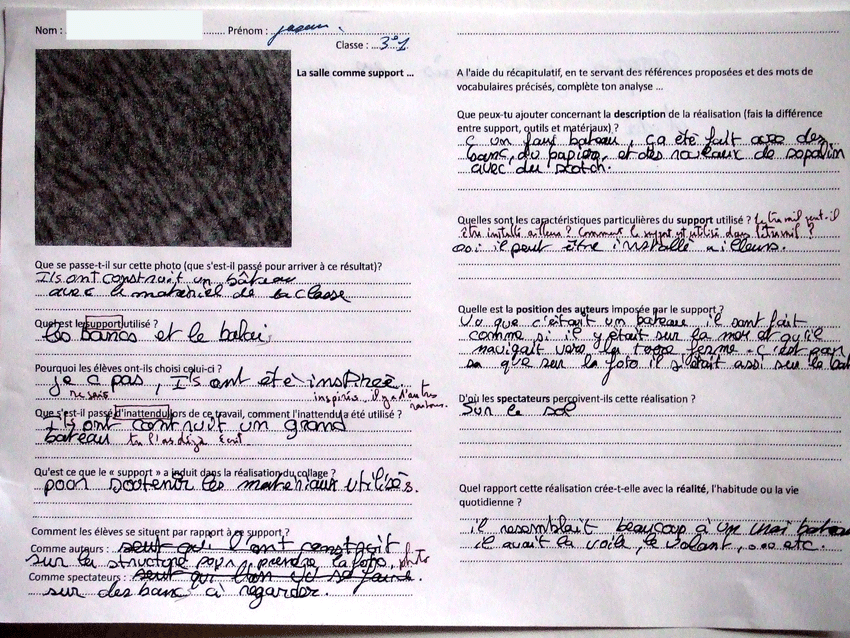 Nom : Prénom :
Classe : 3e1
La salle comme support ...
Que se passe-t-il sur cette photo (que s'est-il passé pour arriver à ce résultat)?
Ils ont construit un bâteau
avec le materiel de la classe
Quel est le support utilisé ?
les bancs et le balai,
Pourquoi les élèves ont-ils choisi celui-ci ?
je c pas, Ils ont étè inspireè
ne sais inspirés il y a d'autres
raisons.
Que s'est-il passé d'inattendu lors de ce travail, comment l'inattendu a été utilisé ?
Ils ont contruit un grand
bateau tu l'as déjà écrit
Qu'est ce que le « support » a induit dans la réalisation du collage ?
pour soutenir les matériaux utilisés.
Comment les élèves se situent par rapport à ce support ?
Comme auteurs : seut qui l'ont construit
sur la structure pour prendre la foto, photo
Comme spectateurs : seut qui l'on
sur des banc a regarder.
A l'aide du récapitulatif, en te servant des références proposées et des mots de
vocabulaires précisés, complète ton analyse ...
Que peux-tu ajouter concernant la description de la réalisation (fais la différence
entre support, outils et matériaux) ?
c un faux bateau, ça étè fait avec des
banc, du papier, et des rouleaux de sopalin
avec du scotch.
Quelles sont les caractéristiques particulières du support utilisé ? Le travail peut-il
être installé ailleurs ? Comment le support est utilisé dans l'travail ?
oui il peut être installè ailleurs.
Quelle est la position des auteurs imposée par le support ?
Vu que c'était un bateau il sont fait
comme si il y était sur la mer et qu'il
navigait vers la terre ferme. C'est pour
sa que sur la foto il s'était assi sur le bat
D'où les spectateurs perçoivent-ils cette réalisation ?
Sur le sol
Quel rapport cette réalisation crée-t-elle avec la réalité, l'habitude ou la vie
quotidienne ?
il resemblait beaucoup à un vrai bateau
il avait la voile, le volant, ... etc.